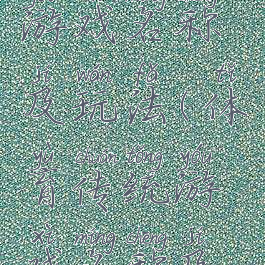 游戏名称
jí wán fǎ tǐ
及玩法(体
yù chuán tǒng yóu
育传统游
xì míng chēng jí
戏名称及